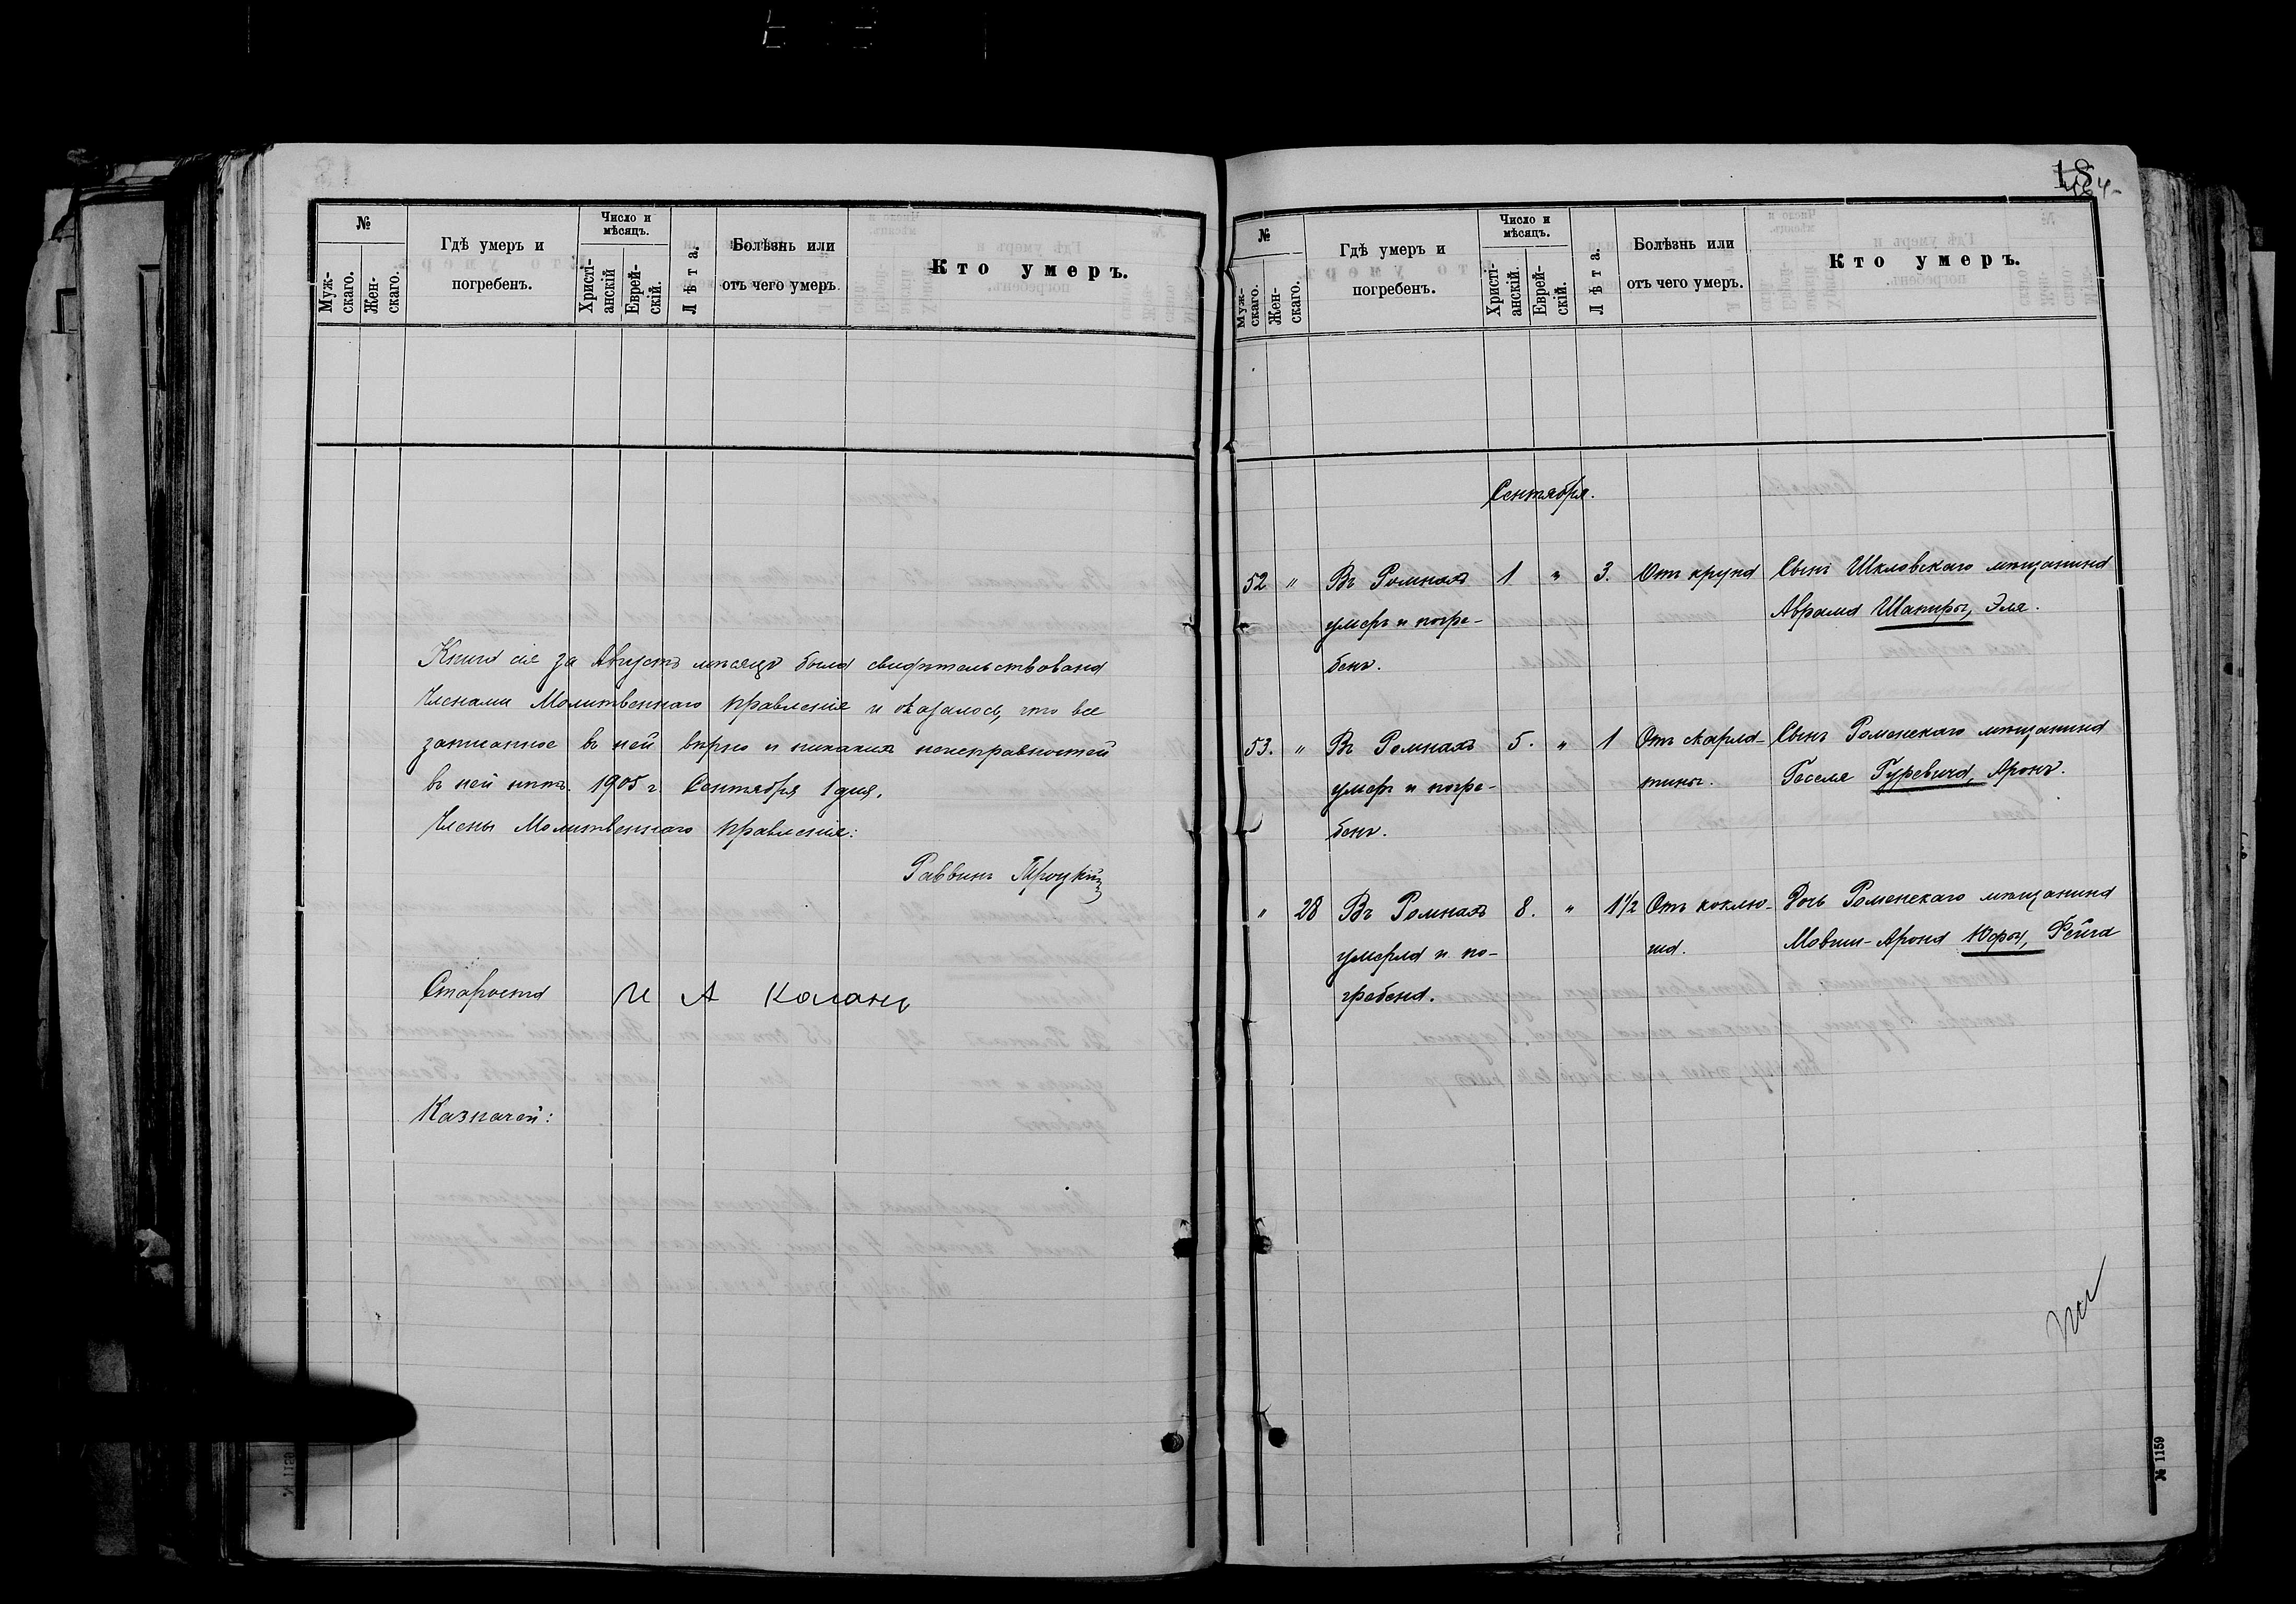 №
Муж-
скаго.
Жен-
скаго.
Гдѣ умеръ и
погребенъ.
Число и
мѣсяцъ.
Христі-
анскій
Еврей-
скій.
Лѣта.
Болѣзнь или
отъ чего умеръ.
Кто умеръ.
Книга сія за Августъ мѣсяцъ была свидѣтельствована
Членами Молитвеннаго Правленія и оказалось, что все
записанное въ ней вѣрно и никакихъ неисправностей
въ ней нѣтъ. 1905 г. Сентября 1 дня.
Члены Молитвеннаго Правленія:
Раввинъ Троцкій
Староста И А Каганъ
Казначей:
18
№
Муж-
скаго.
Жен-
скаго.
Гдѣ умеръ и
погребенъ.
Число и
мѣсяцъ.
Христі-
анскій.
Еврей-
скій.
Лѣта.
Болѣзнь или
отъ чего умеръ.
Кто умеръ.
Сентября.
52 " Въ Ромнахъ 1 " 3. Отъ крупа Сынъ Шкловскаго мѣщанина
умеръ и погре- Аврама Шапиры, Эля.
бенъ.
53. " Въ Ромнахъ 5. " 1 Отъ скарла- Сынъ Роменскаго мѣщанина
умеръ и погре- тины. Іоселя Гуревича, Аронъ.
бенъ.
" 28 Въ Ромнахъ 8. " 1½ Отъ коклю- Дочь Роменскаго мѣщанина
умерла и по- ша. Мовши-Арона Юфы, Фейга
гребена.
№ 1159